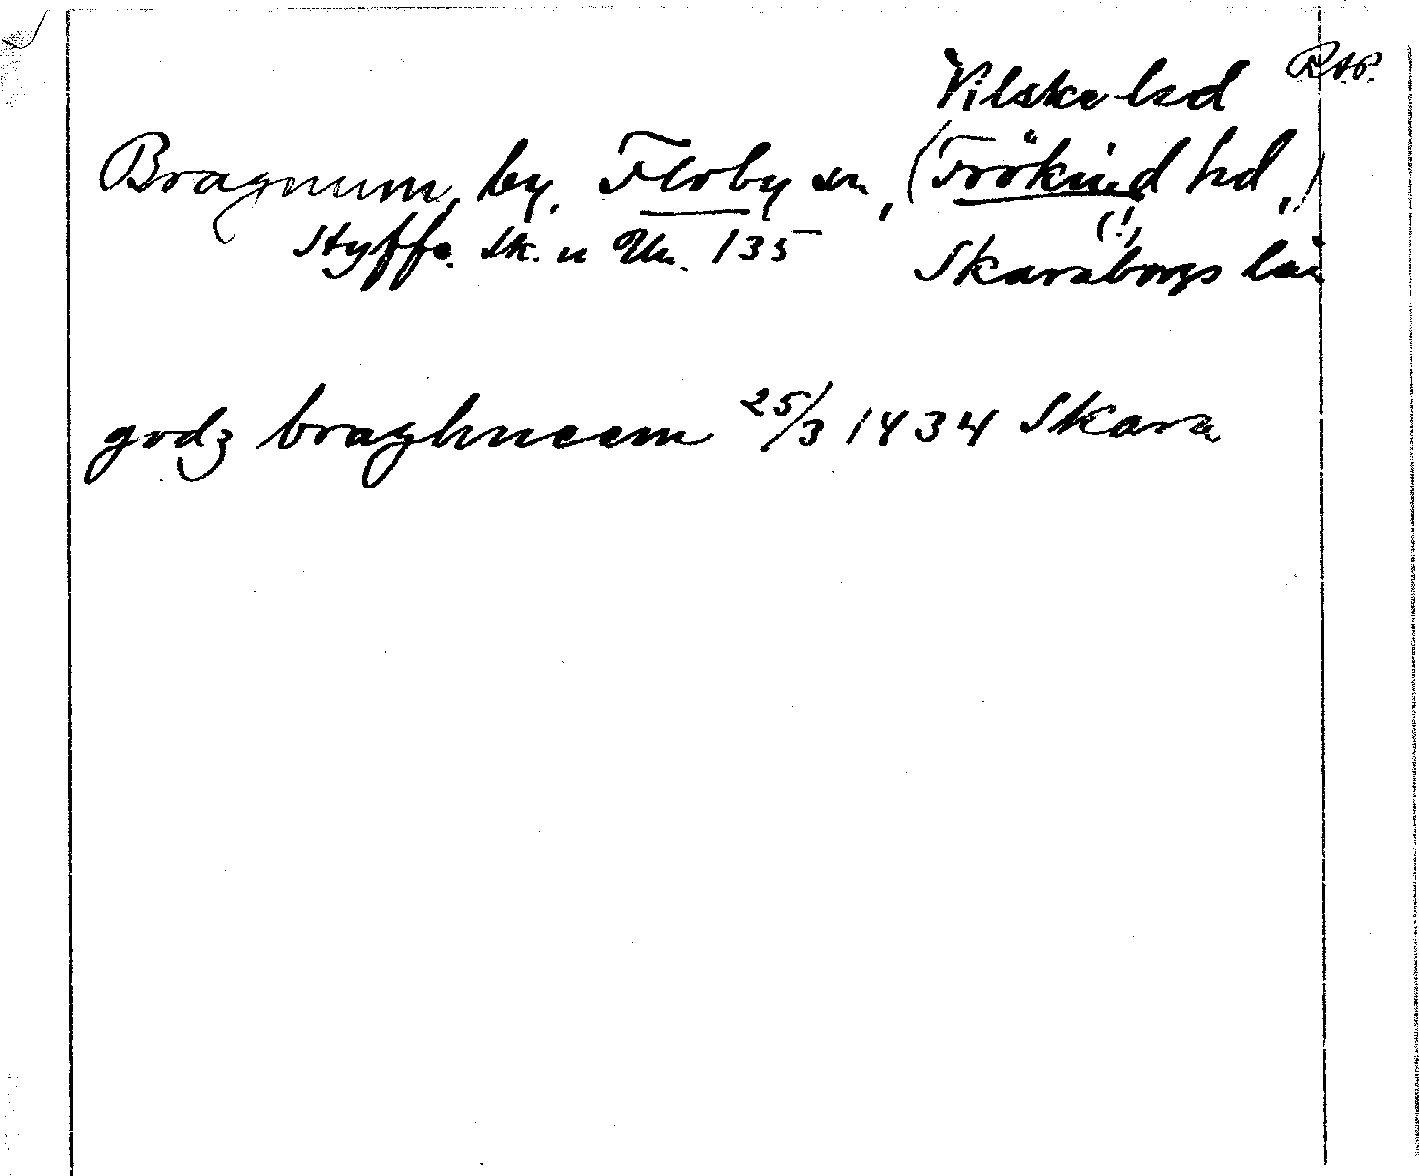 Vilske hd RAP.
Bragnum, by, Floby sn, (Frökind hd,)
(!)
Styffe. Sk. u Un. 135 Skaraborgs län
godz braghneem 25/3 1434 Skara